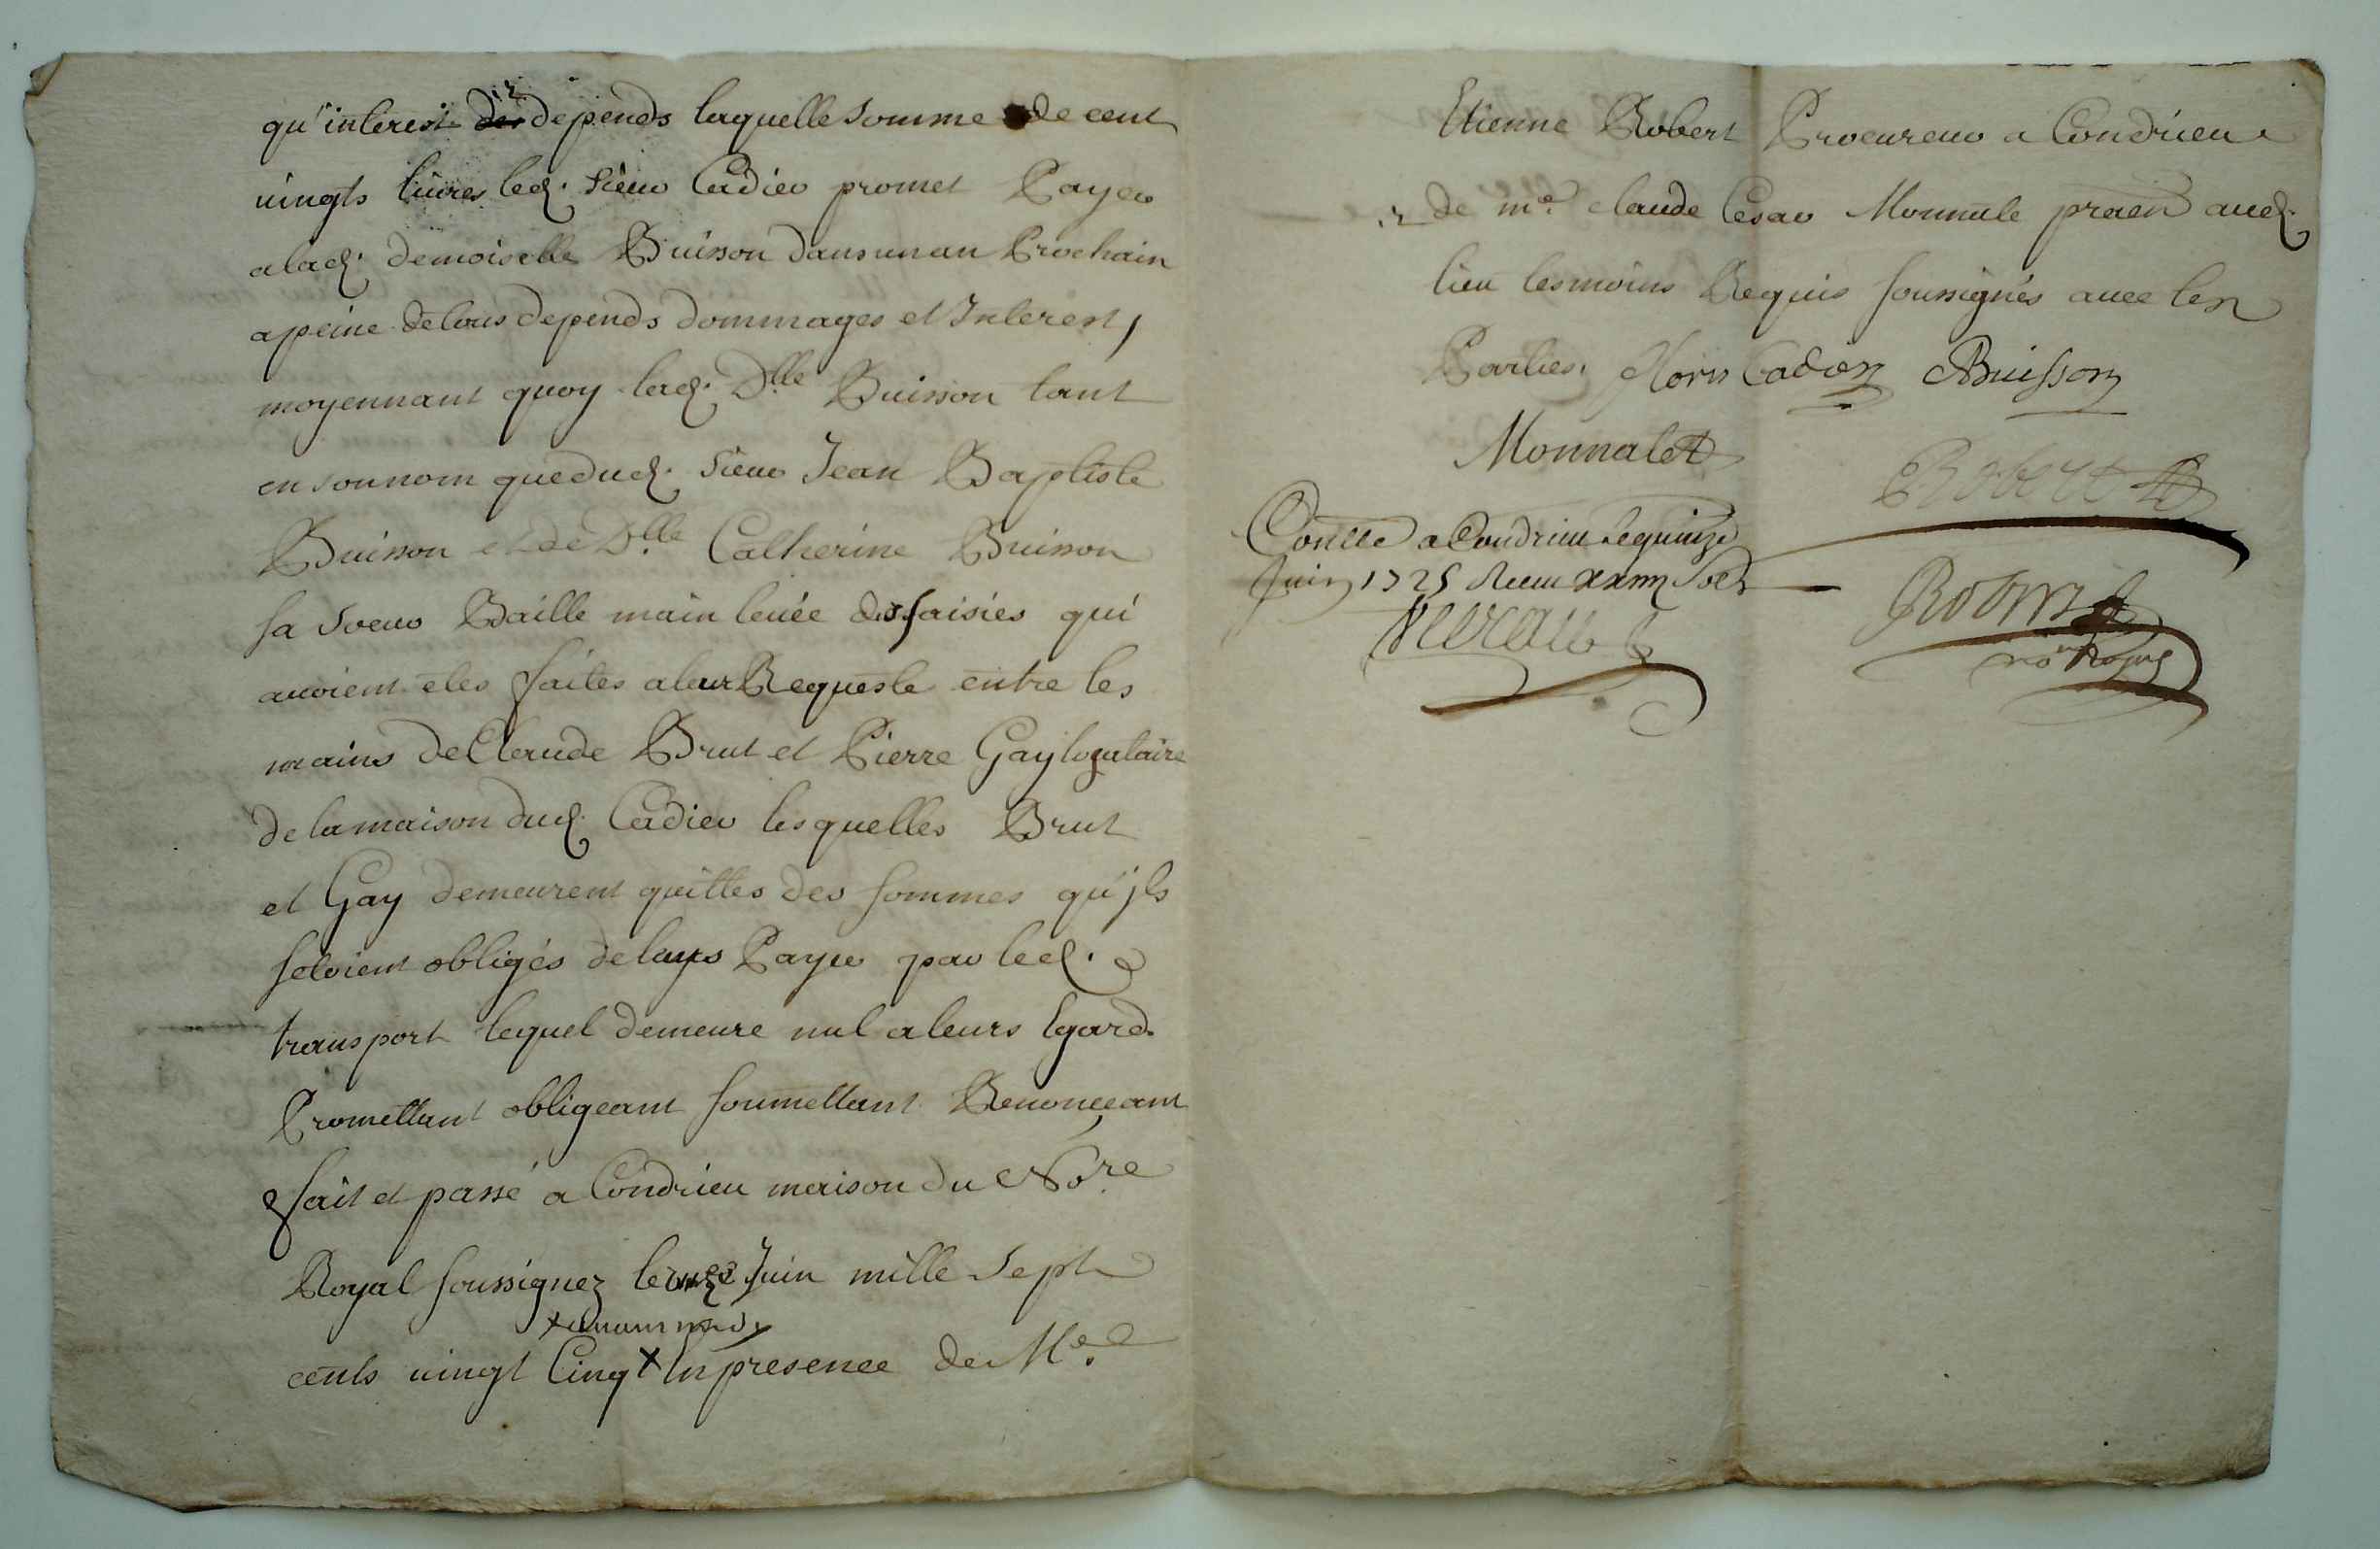 qu'interest & depends laquelle somme de cent
vingts livres led. Sieur Cadier promet Payer
a lad. demoiselle Buisson dans un an Prochain
a peine de tous depends dommages et Interest,
moyennant quoy lad. Dlle Buisson tant
en son nom que dud. Sieur Jean Baptiste
Buisson et de Dlle Catherine Buisson
sa soeur Baille main levée des saisies qui
avoient etes faites a leur Requeste entre les
mains de Claude Brut et Pierre Gay locataire
de la maison dud. Cadier lesquelles Brut
et Gay demeurent quittes des sommes qu'jls
setoient obligés de Payer par led.
transport lequel demeure nul a leurs Egard
Promettant obligeant soumettant Renonceant
fait et passé a Condrieu maison du No.re
Royal soussignez le onze Juin mille Sept
cents vingt Cinq x En presence de Me.
Etienne Robert Procureur a Condrieu
& de me. Claude Cesar Monnale praen aud.
lieu tesmoins Requis soussignés avec les
Parties. Cadier Buisson
Monnalet
Robert
Conllé a Condrieu le quinze
Juin 1725 Receu sols